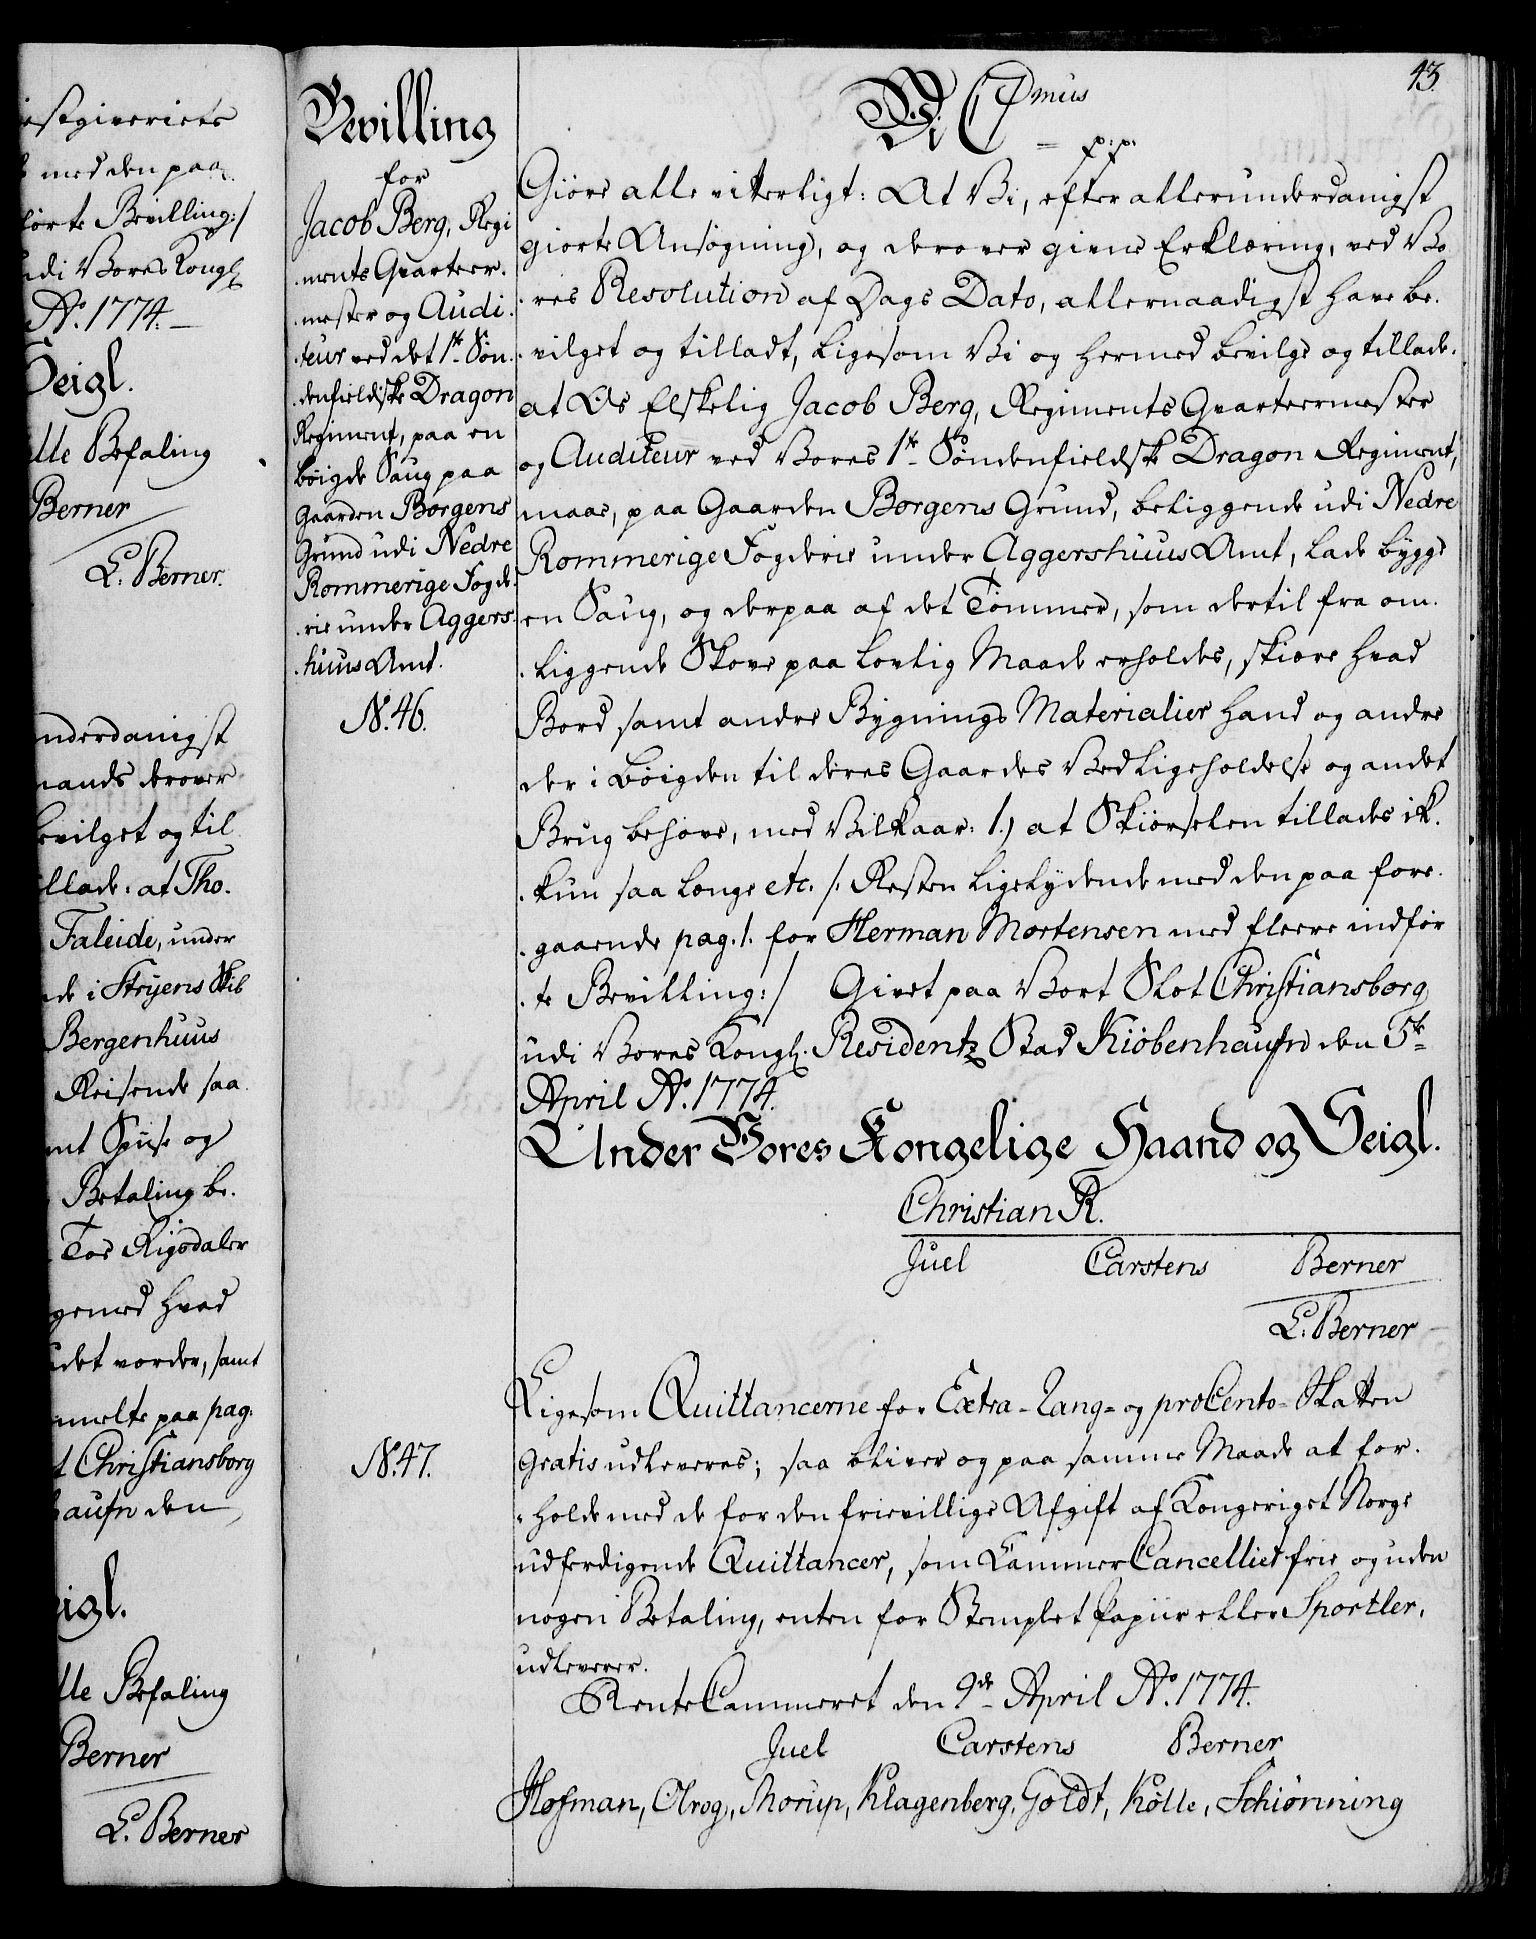 estgiveriets
med den paa
førte Bevilling:/
udi Vores Kongl.
Ao. 1774.
Seigl.
lle Befaling
Berner
L: Berner.
nderdanigst
mands derover
evilget og til
llade: at Tho.
Faleide, under
de i Stryens Skib
Bergenhuus
Reisende saa
mt Spise og
Betaling be.
Toe Rigsdaler
gemed hvad
udet vorder, samt
melte paa pag:
t Christiansborg
haufn den
igl.
lle Befaling
Berner
L: Berner
43.
Bevilling
for
Jacob Berg, Regi
.ments Qvarteer.
.mester og Audi.
.teur ved det 1te Søn.
.denfieldske Dragon
Regiment, paa en
bøigde Saug paa
Gaarden Borgens
Grund udi Nedre
Rommerige Fogde.
.rie under Aggers.
.huus Amt.
No. 46.
Vi C 7mus
p.p.
Giøre alle vitterligt: At Vi, efter allerunderdanigst
giorte Ansøgning, og derover givne Erklæring, ved Vo
.res Resolution af Dags Dato, allernaadigst have be.
.vilget og tilladt, ligesom Vi og hermed bevilge og tillade.
at Os Elskelig Jacob Berg, Regiments Qvarteermester
og Auditeur ved Vores 1te Søndenfieldske Dragon Regiment,
maae, paa Gaarden Borgens Grund, beliggende udi Nedre
Rommerige Fogderie under Aggershuus Amt, lade bygge
en Saug, og derpaa af det Tømmer, som dertil fra om.
.liggende Skove paa lovlig Maade erholdes, skiære hvad
Bord samt andre Bygnings Materialier hand og andre
der i bøigden til deres Gaardes Vedligeholdelse og andet
Brug behøve, med Vilkaar: 1.) at Skiørselen tillades ik.
.kun saa længe etc. /: Resten ligelydende med den paa fore.
.gaaende pag. 1. for Herman Mortensen med fleere indfør
.te Bevilling:/ Givet paa Vort Slot Christiansborg
udi Vores Kongl. Residentz Stad Kiøbenhaufn den 5te
April Ao. 1774.
Under Vores Kongelige Haand og Seigl.
Christian R.
Juel Carstens Berner
L: Berner
Ligesom Quittancerne for Extra-Rang- og proCento-Skatten
gratis udleveres; saa bliver og paa samme Maade at for.
.holde med de for den frievillige Afgift af Kongeriget Norge
udferdigende Quittancer, som CammerCancelliet frie og uden
nogen Betaling, enten for Stemplet Papiir eller Sportler,
udleverer.
RenteCammeret den 9de April Ao. 1774.
Juel Carstens Berner
Hofman, Olrog, Thorup, Klagenberg, Goldt, Kølle, Schiønning
No. 47.